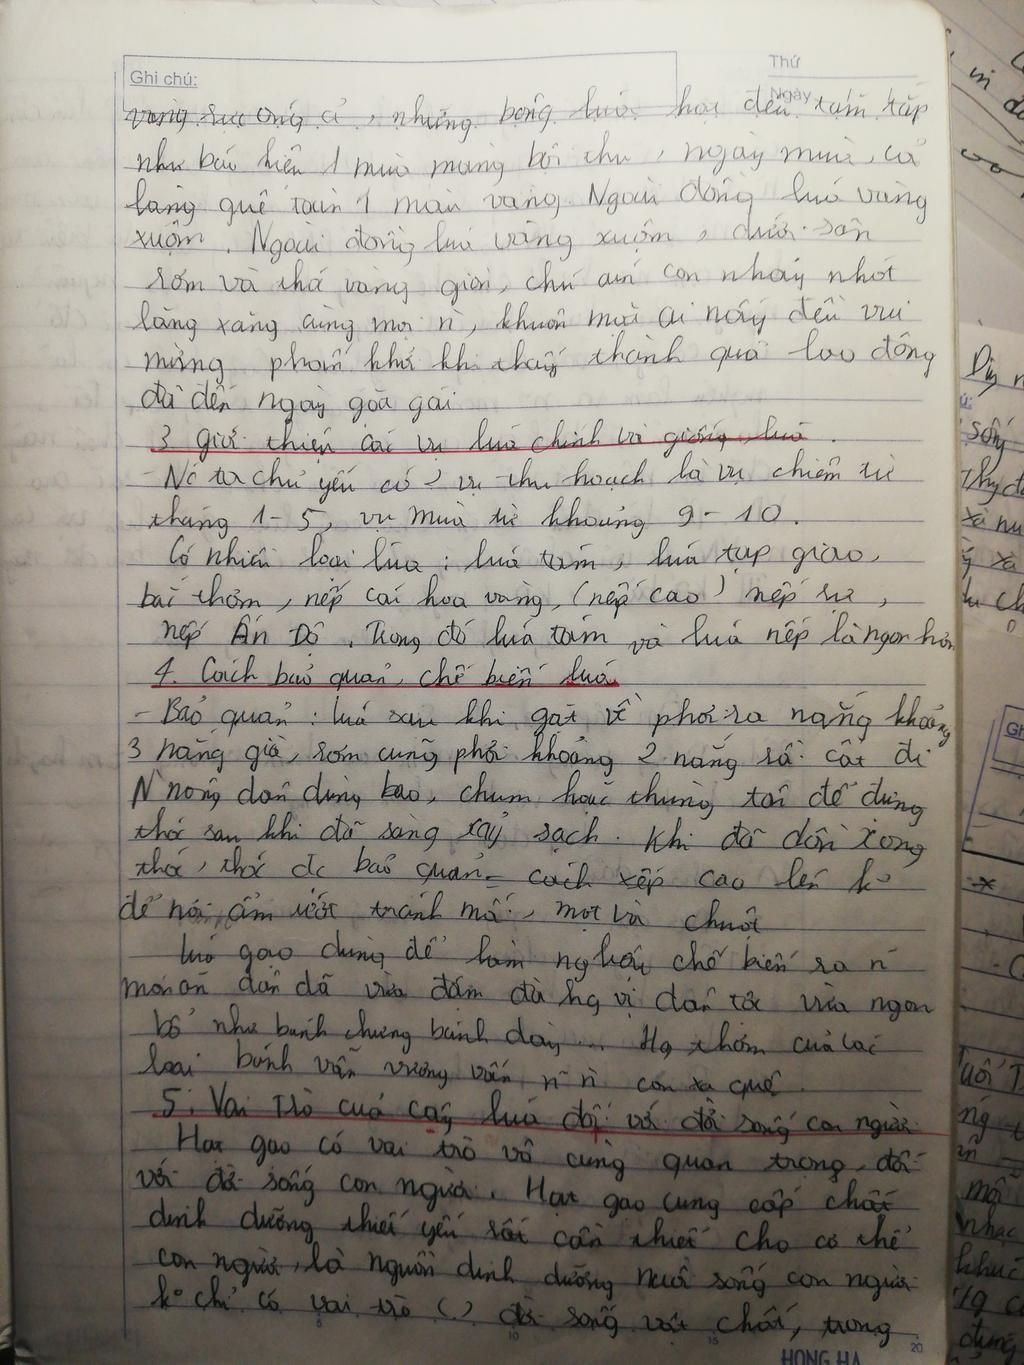 Ghi chú:
Thứ
Ngày
những bông lúa hạt đều tăm tắp
như báo hiệu 1 mùa màng bội thu, ngày mùa, cả
làng quê toàn 1 màu vàng. Ngoài đồng lúa vàng
xuộm. Ngoài đồng lúa vàng xuộm, dưới sân
rơm và thó vàng giòn, chú am con nhảy nhót
lăng xăng cùng mọi n, khuôn mặt ai nấy đều vui
mừng phấn khởi khi thấy thành quả lao động
đã đến ngày gặt gái
3 Giới thiệu các vụ lúa chính và giống lúa.
- Nc ta chủ yếu có 2 vụ thu hoạch là vụ chiêm từ
tháng 1-5, vụ mùa từ khoảng 9-10.
Có nhiều loại lúa: lúa tám, lúa tạp giao,
bắc thơm, nếp cái hoa vàng, (nếp cao) nếp
nếp Ấn Độ. Trong đó lúa tám và lúa nếp là ngon hơn
4. Cách bảo quản, chế biến lúa
- Bảo quản: lúa sau khi gặt về phơi ra nắng khoảng
3 nắng già, rơm cũng phơi khoảng 2 nắng rồi cất đi
N nông dân dùng bao, chum hoặc thùng tôn để đựng
thóc sau khi đã sàng sảy sạch. Khi đã dồn xong
thóc, thóc đc bảo quản cách xếp cao lên ko
để nơi ẩm ướt tránh mối, mọt và chuột
lúa gạo dùng để làm nguyên chế biến ra n
món ăn dân dã vừa đậm đà hg vị dân tộc vừa ngon
bổ như bánh chưng bánh dày ... Hg thơm của các
loại bánh vẫn vương vấn n n con xa quê
5. Vai Trò của cây lúa đối với đời sống con người
Hạt gạo có vai trò vô cùng quan trọng, đối
với đời sống con người. Hạt gạo cung cấp chất
dinh dưỡng thiết yếu rất cần thiết cho cơ thể
con người, là nguồn dinh dưỡng nuôi sống con người
ko chỉ có vai trò ( ) đời sống vật chất, trong
10
15
20
HONG HA